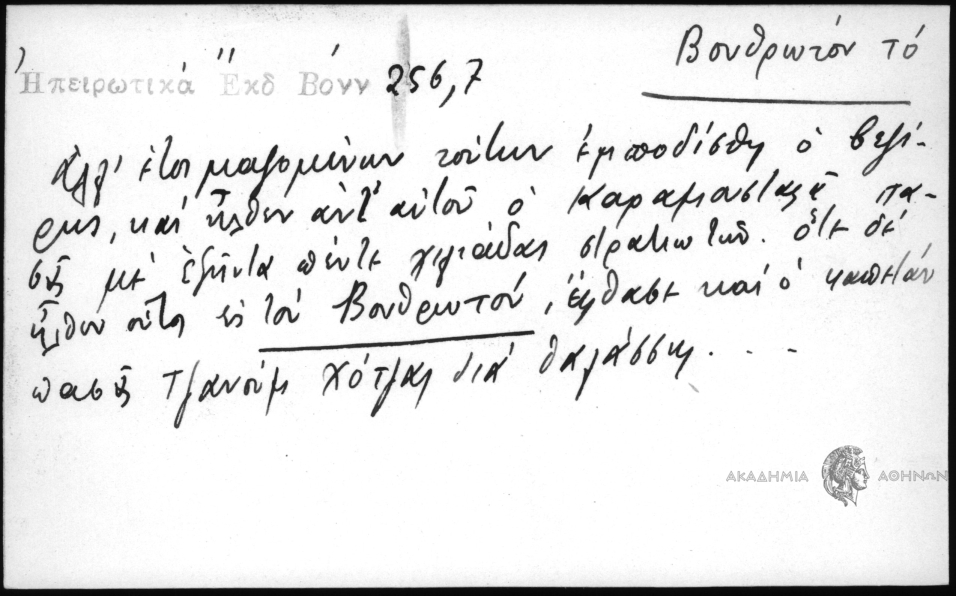 Βουθρωτόν τό
Ἠπειρωτικὰ Ἔκδ Βόνν 256,7
Ἀλλ' ἑτοιμαζομένων τούτων ἐμποδίσθη ὁ βεζί-
ρης, καὶ ἦλθεν ἀντ' αὐτοῦ ὁ Καραμουσταφᾶ πα-
σᾶς μὲ ἑξῆντα πέντε χιλιάδας στρατιωτῶν. ὅτε δὲ
ἦλθεν οὗτος εἰς τὸν Βουθρωτόν, ἔφθασε καὶ ὁ καπετὰν
πασᾶς Τζανοὺμ Χότζας διὰ θαλάσσης....
ΑΚΑΔΗΜΙΑ ΑΘΗΝΩΝ